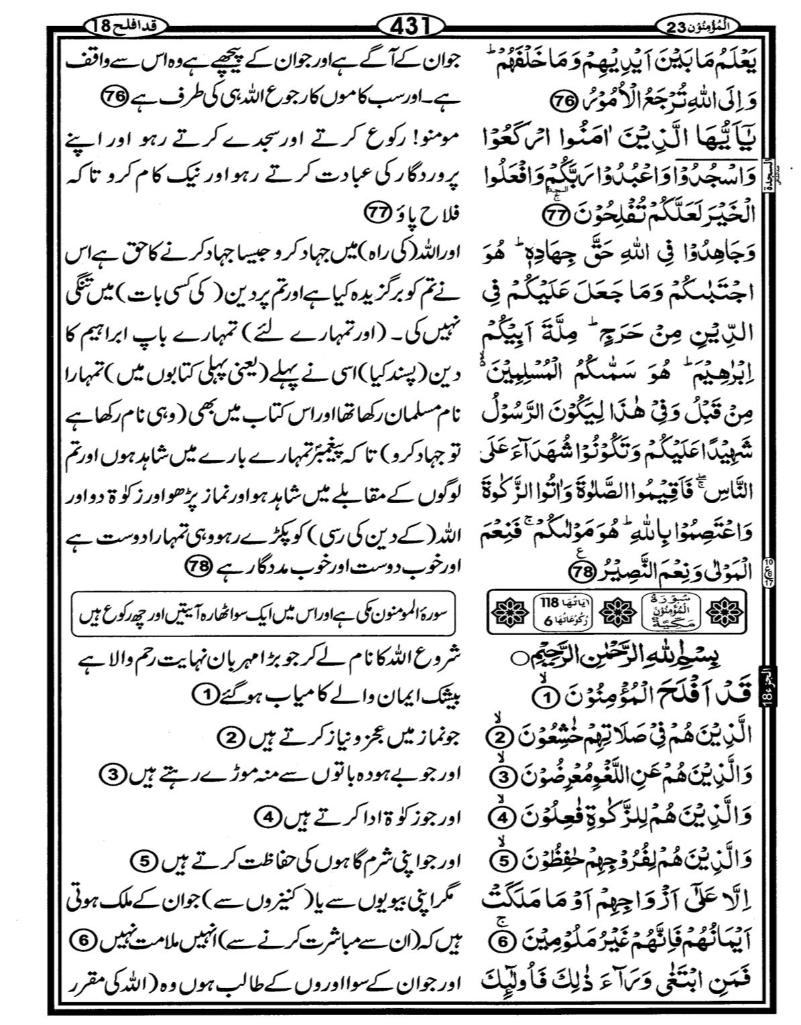 المؤمنون 23
431
قد افلح 18
يَعْلَمُ مَا بَيْنَ اَيْدِيْهِمْ وَمَا خَلْفَهُمْ ؕ
وَاِلَى اللّٰهِ تُرْجَعُ الْاُمُوْرُ 76
يٰۤاَيُّهَا الَّذِيْنَ اٰمَنُوا ارْكَعُوْا
وَاسْجُدُوْا وَاعْبُدُوْا رَبَّكُمْ وَافْعَلُوا
الْخَيْرَ لَعَلَّكُمْ تُفْلِحُوْنَ 77
وَجَاهِدُوْا فِى اللّٰهِ حَقَّ جِهَادِهٖ ؕ هُوَ
اجْتَبٰىكُمْ وَمَا جَعَلَ عَلَيْكُمْ فِى
الدِّيْنِ مِنْ حَرَجٍ ؕ مِلَّةَ اَبِيْكُمْ
اِبْرٰهِيْمَ ؕ هُوَ سَمّٰىكُمُ الْمُسْلِمِيْنَ
مِنْ قَبْلُ وَفِىْ هٰذَا لِيَكُوْنَ الرَّسُوْلُ
شَهِيْدًا عَلَيْكُمْ وَتَكُوْنُوْا شُهَدَآءَ عَلَى
النَّاسِ ۖۚ فَاَقِيْمُوا الصَّلٰوةَ وَاٰتُوا الزَّكٰوةَ
وَاعْتَصِمُوْا بِاللّٰهِ ؕ هُوَ مَوْلٰىكُمْ ۚ فَنِعْمَ
الْمَوْلٰى وَنِعْمَ النَّصِيْرُ 78
سورة المؤمنون مكية
اياتها 118
ركوعاتها 6
بِسْمِ اللّٰهِ الرَّحْمٰنِ الرَّحِيْمِ
قَدْ اَفْلَحَ الْمُؤْمِنُوْنَ 1
الَّذِيْنَ هُمْ فِىْ صَلَاتِهِمْ خٰشِعُوْنَ 2
وَالَّذِيْنَ هُمْ عَنِ اللَّغْوِ مُعْرِضُوْنَ 3
وَالَّذِيْنَ هُمْ لِلزَّكٰوةِ فٰعِلُوْنَ 4
وَالَّذِيْنَ هُمْ لِفُرُوْجِهِمْ حٰفِظُوْنَ 5
اِلَّا عَلٰٓى اَزْوَاجِهِمْ اَوْ مَا مَلَكَتْ
اَيْمَانُهُمْ فَاِنَّهُمْ غَيْرُ مَلُوْمِيْنَ 6
فَمَنِ ابْتَغٰى وَرَآءَ ذٰلِكَ فَاُولٰٓئِكَ
جو ان کے آگے ہے اور جو ان کے پیچھے ہے وہ اس سے واقف
ہے۔ اور سب کاموں کا رجوع اللہ ہی کی طرف ہے 76
مومنو! رکوع کرتے اور سجدے کرتے رہو اور اپنے
پروردگار کی عبادت کرتے رہو اور نیک کام کرو تاکہ
فلاح پاؤ 77
اور اللہ (کی راہ) میں جہاد کرو جیسا جہاد کرنے کا حق ہے اس
نے تم کو برگزیدہ کیا ہے اور تم پر دین (کی کسی بات) میں تنگی
نہیں کی۔ (اور تمہارے لئے) تمہارے باپ ابراہیم کا
دین (پسند کیا) اسی نے پہلے (یعنی پہلی کتابوں میں) تمہارا
نام مسلمان رکھا تھا اور اس کتاب میں بھی (وہی نام رکھا ہے
تو جہاد کرو) تاکہ پیغمبر تمہارے بارے میں شاہد ہوں اور تم
لوگوں کے مقابلے میں شاہد ہو اور نماز پڑھو اور زکوٰة دو اور
اللہ (کے دین کی رسی) کو پکڑے رہو وہی تمہارا دوست ہے
اور خوب دوست اور خوب مددگار ہے 78
سورۃ المومنون مکی ہے اور اس میں ایک سو اٹھارہ آیتیں اور چھ رکوع ہیں
شروع اللہ کا نام لے کر جو بڑا مہربان نہایت رحم والا ہے
بیشک ایمان والے کامیاب ہو گئے 1
جو نماز میں عجز و نیاز کرتے ہیں 2
اور جو بے ہودہ باتوں سے منہ موڑے رہتے ہیں 3
اور جو زکوٰة ادا کرتے ہیں 4
اور جو اپنی شرم گاہوں کی حفاظت کرتے ہیں 5
مگر اپنی بیویوں سے یا (کنیزوں سے) جو ان کے ملک ہوتی
ہیں کہ (ان سے مباشرت کرنے سے) انہیں ملامت نہیں 6
اور جو ان کے سوا اوروں کے طالب ہوں وہ (اللہ کی مقرر
السجدة
الجزء 18